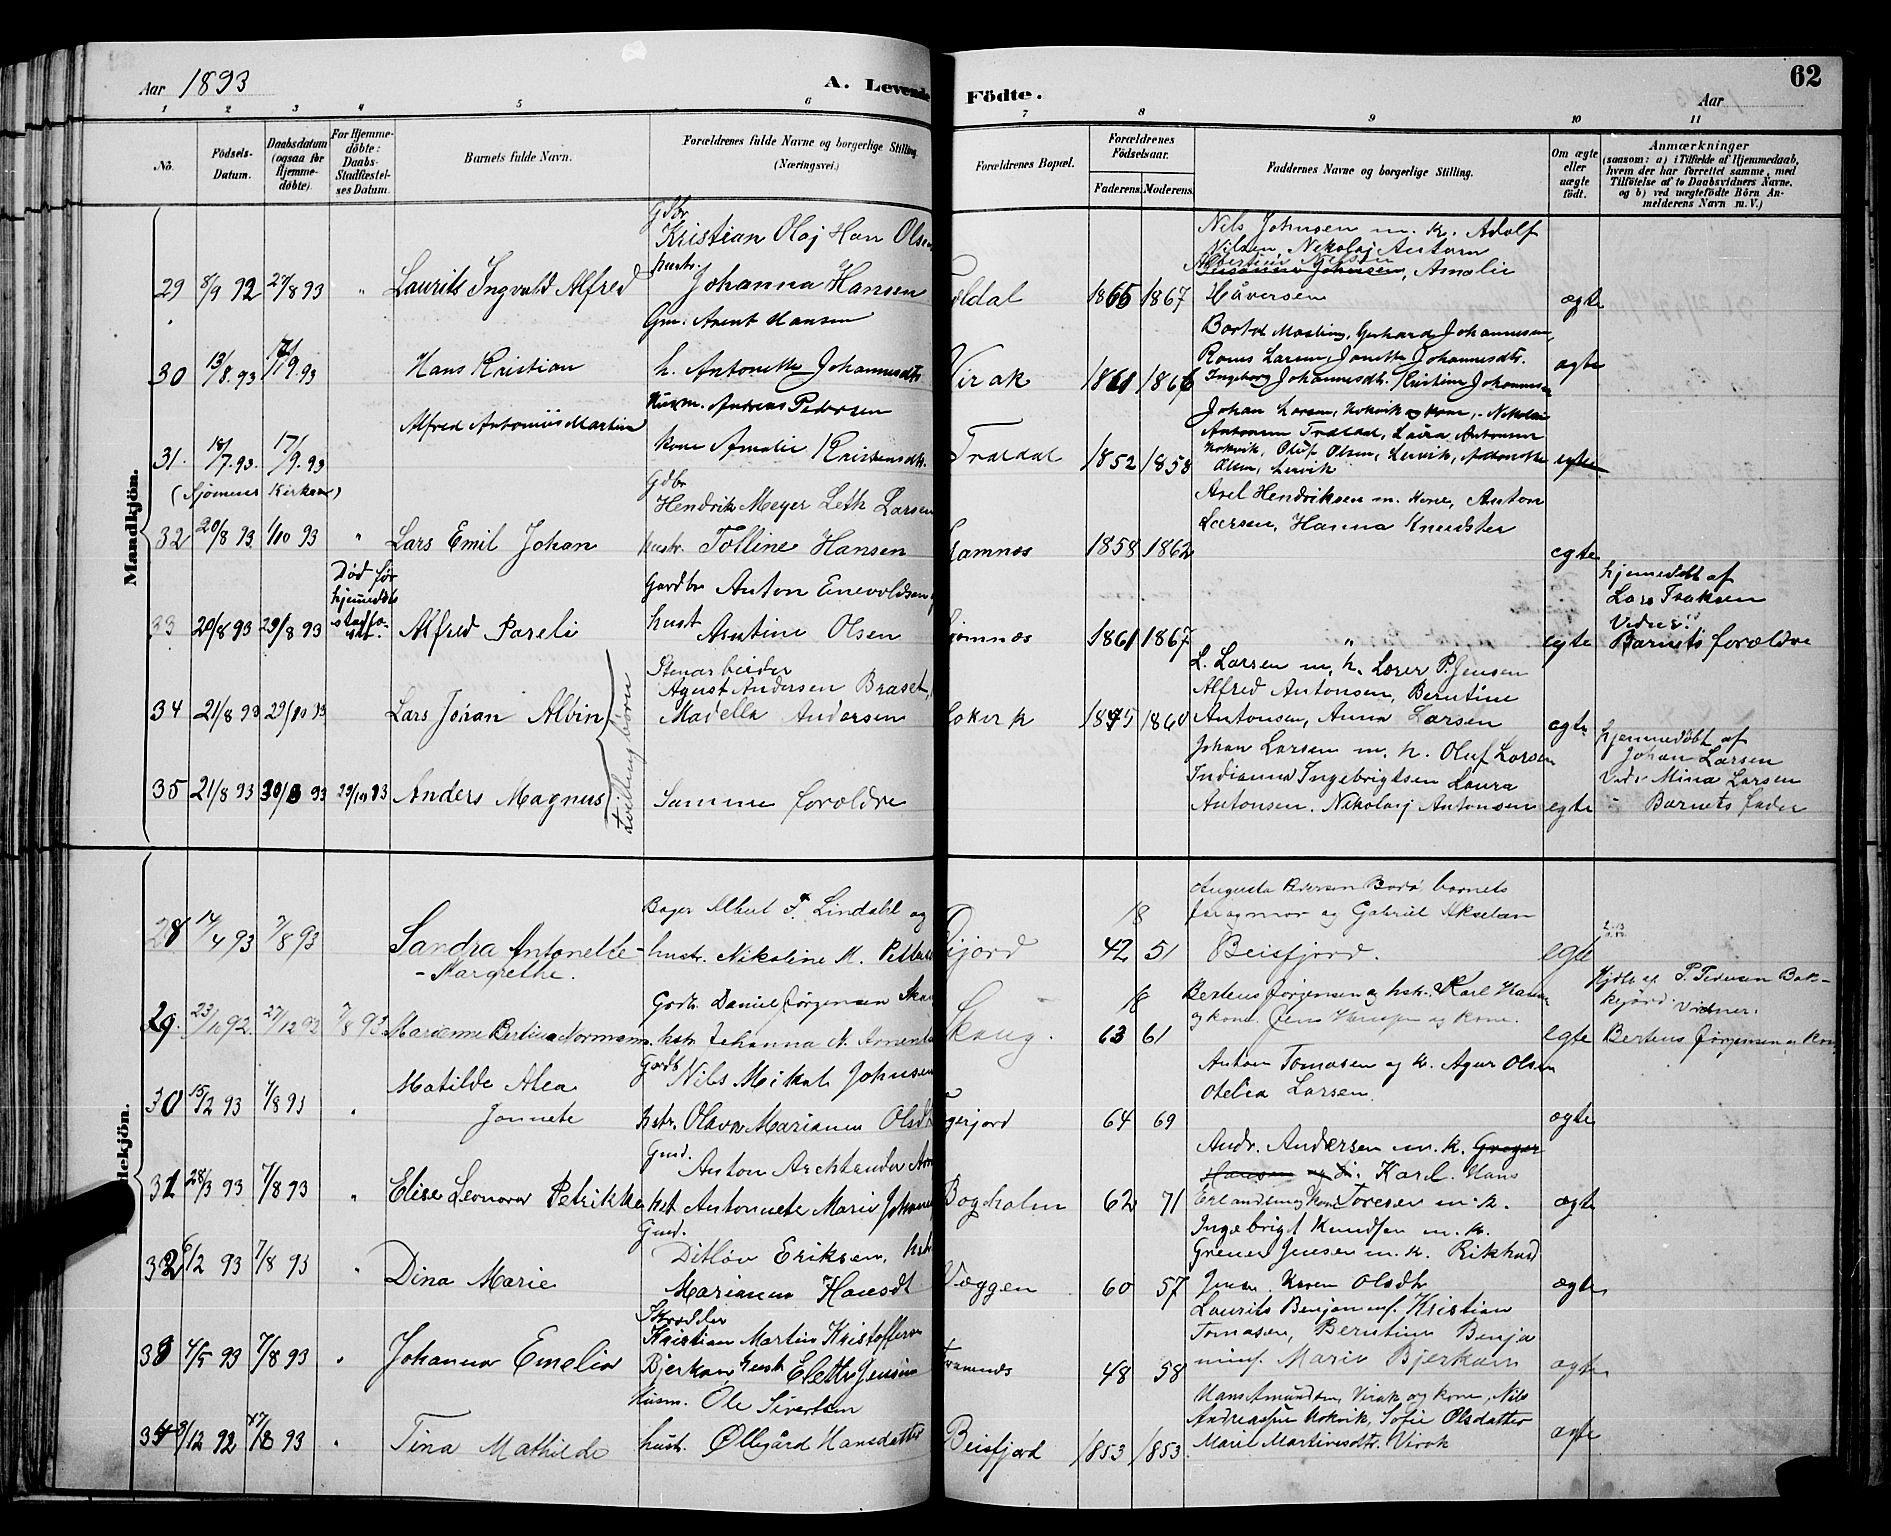 Aar 1893
A. Levende Födte.
Aar
62
1 2 3 4 5 6 7 8 9 10 11
No.
Födsels-Datum.
Daabsdatum (ogsaa for Hjemme-døbte).
For Hjemme-døbte: Daabs-Stadfæstel-ses Datum.
Barnets fulde Navn.
Forældrenes fulde Navne og borgerlige Stilling. (Næringsvei.)
Forældrenes Bopæl.
Forældrenes Födselsaar.
Faderens. Moderens.
Faddernes Navne og borgerlige Stilling.
Om ægte eller uægte født.
Anmærkninger
(saasom: a) i Tilfælde af Hjemmedaab, hvem der har forrettet samme, med Tilföielse af to Daabsvidners Navne. og b) ved uægtefödte Börn An-melderens Navn m. V.)
Mandkjön.
Gdbr
Kristian Olaj Han Olsen
hustr.
29 8/9 92 27/8 93 " Laurits Ingvald Alfred Johanna Hansen
1865 1867
Nils Johnsen m. k. Adolf
Nilsen, Nikolaj Antom
Albertine Nilsdtr
Amalie
Håversen
ægte
Gm. Arent Hansen
30 13/8.93 17/9.93 Hans Kristian h. Antonette Johannesdtr
Virak 1861 1866
Bortol Mosling, Gerhard Johannesen,
Rasmus Larsen, Jonette Johannesdtr.
Ingeborg Johannesdtr. Kristine Johannesen
ægte
Husm. Andreas Pedersen
31. 18/7.93. 17/9.93 Alfred Antoniis Martin
kone Amalie Kristensdtr.
Traldal 1852 1858
Johan Larsen, Hokvik og kone, Nikolai
Antonsen Traldal, Laura Antonsen
Hokvik, Oluf Olsen, Lervik,
Olsen, Lervik
egte
(Sjømens Kirken)
Gdbr
Hendrik Meyer Leth Larsen
32 20/8 93 1/10 93 " Lars Emil Johan hustr. Tolline Hansen
1858 1862
Axel Hendriksen m. kone, Anton
Larsen, Hanna Knudster
egte
Død før
hjemedåbs
stadfæ-
stet.
Gardbr Anton Enevoldsen
33 20/8 93 29/8 93 Alfred Pareli hust Antine Olsen
1861 1867 "
egte
hjemedøbt af
Lars Isaksen
Vidner:
Barnets forældre
Stenarbeider
Agust Andersen Braset,
34 21/8 93 29/10 93 Lars Johan Albin Madella Andersen
1875 1860
L. Larsen m. h. Lærer P. Jensen
Alfred Antonsen, Berntine
Antonsen, Anna Larsen
egte
tvilling børn
35 21/8 93 30/8 93 29/10 93 Anders Magnus Samme forældre
Johan Larsen m. h. Oluf Larsen
Indianna Ingebrigtsen Laura
Antonsen. Nikolaij Antonsen
egte
hjemmedøbt af
Johan Larsen
Vidr Mina Larsen
- Barnets fader
Kvindekjön.
Bager Albert P. Lindahl og
28 14/4 93 7/8 93 Sandra Antonette-
-Margrethe. hustr. Nikoline M.
18
42 51
Augusta Pedersen Bodø barnets
farmor og Gabriel Akselsen
Beisfjord.
egte
Gartr. Daniel Jørgensen Skau
29. 23/11 92. 27/12 92 7/8 93. Marienne Bertina Normann. hstr Johanna N.
Skaug. 18
63 61
Bertens Jørgensen og hstr. Karl Hansen
og kone. Jens Hansen og kone.
egte
Hjdbt af P. Pedersen Bok-
kejord. Vidner:
Bertens Jørgensen og kone
Gardb Nils Mikal Johnsen
30 15/2 93 7/8 93 " Matilde Alea
Jonnete hstr. Olava Marianna Olsdtr
64 69
Anton Tomasen og k. Agur Olsen
Otelia Larsen
ægte
Gmd.
Anton Archtander
31 28/3 93 7/8 93 " Elise Leonora Petrikke hst Antonnete Marie
Bogholm 62 71
Andr. Andersen m. k. Greger
Hansen og k. Karl. Hans
Erlandsen og kone Toresen m. k.
Ingebrigt Knudsen m. k.
ægte
Gmd.
Ditløv Eriksen, hst
32 6/2 93 7/8 93 " Dina Marie Marianna Hansdt
Væggen 60 57
Grener Jensen m. k. Rikhard
Jensen, Karen Olsdtr
ægte
Skrædder
Kristian Martin Kristoffersen
33 4/5 93 7/8 93 " Johanna Emelia Bjerkan, hust Elette Jensine
48 58
Laurits Benjaminsf. Kristian
Tomasen, Berntine Benja
minsf. Marie Bjerkan
ægte
Husm. Ole Sivertsen
34 9/12 92 27/8 93 " Tina Mathilde hustr. Øllegård Hansdatter
Beisfjord 1853 1853
Hans Amundsen, Virak og kone, Nils
Andreassen Hokvik, Sofie Olsdatter
Marit Martinesdtr. Virak
ægte